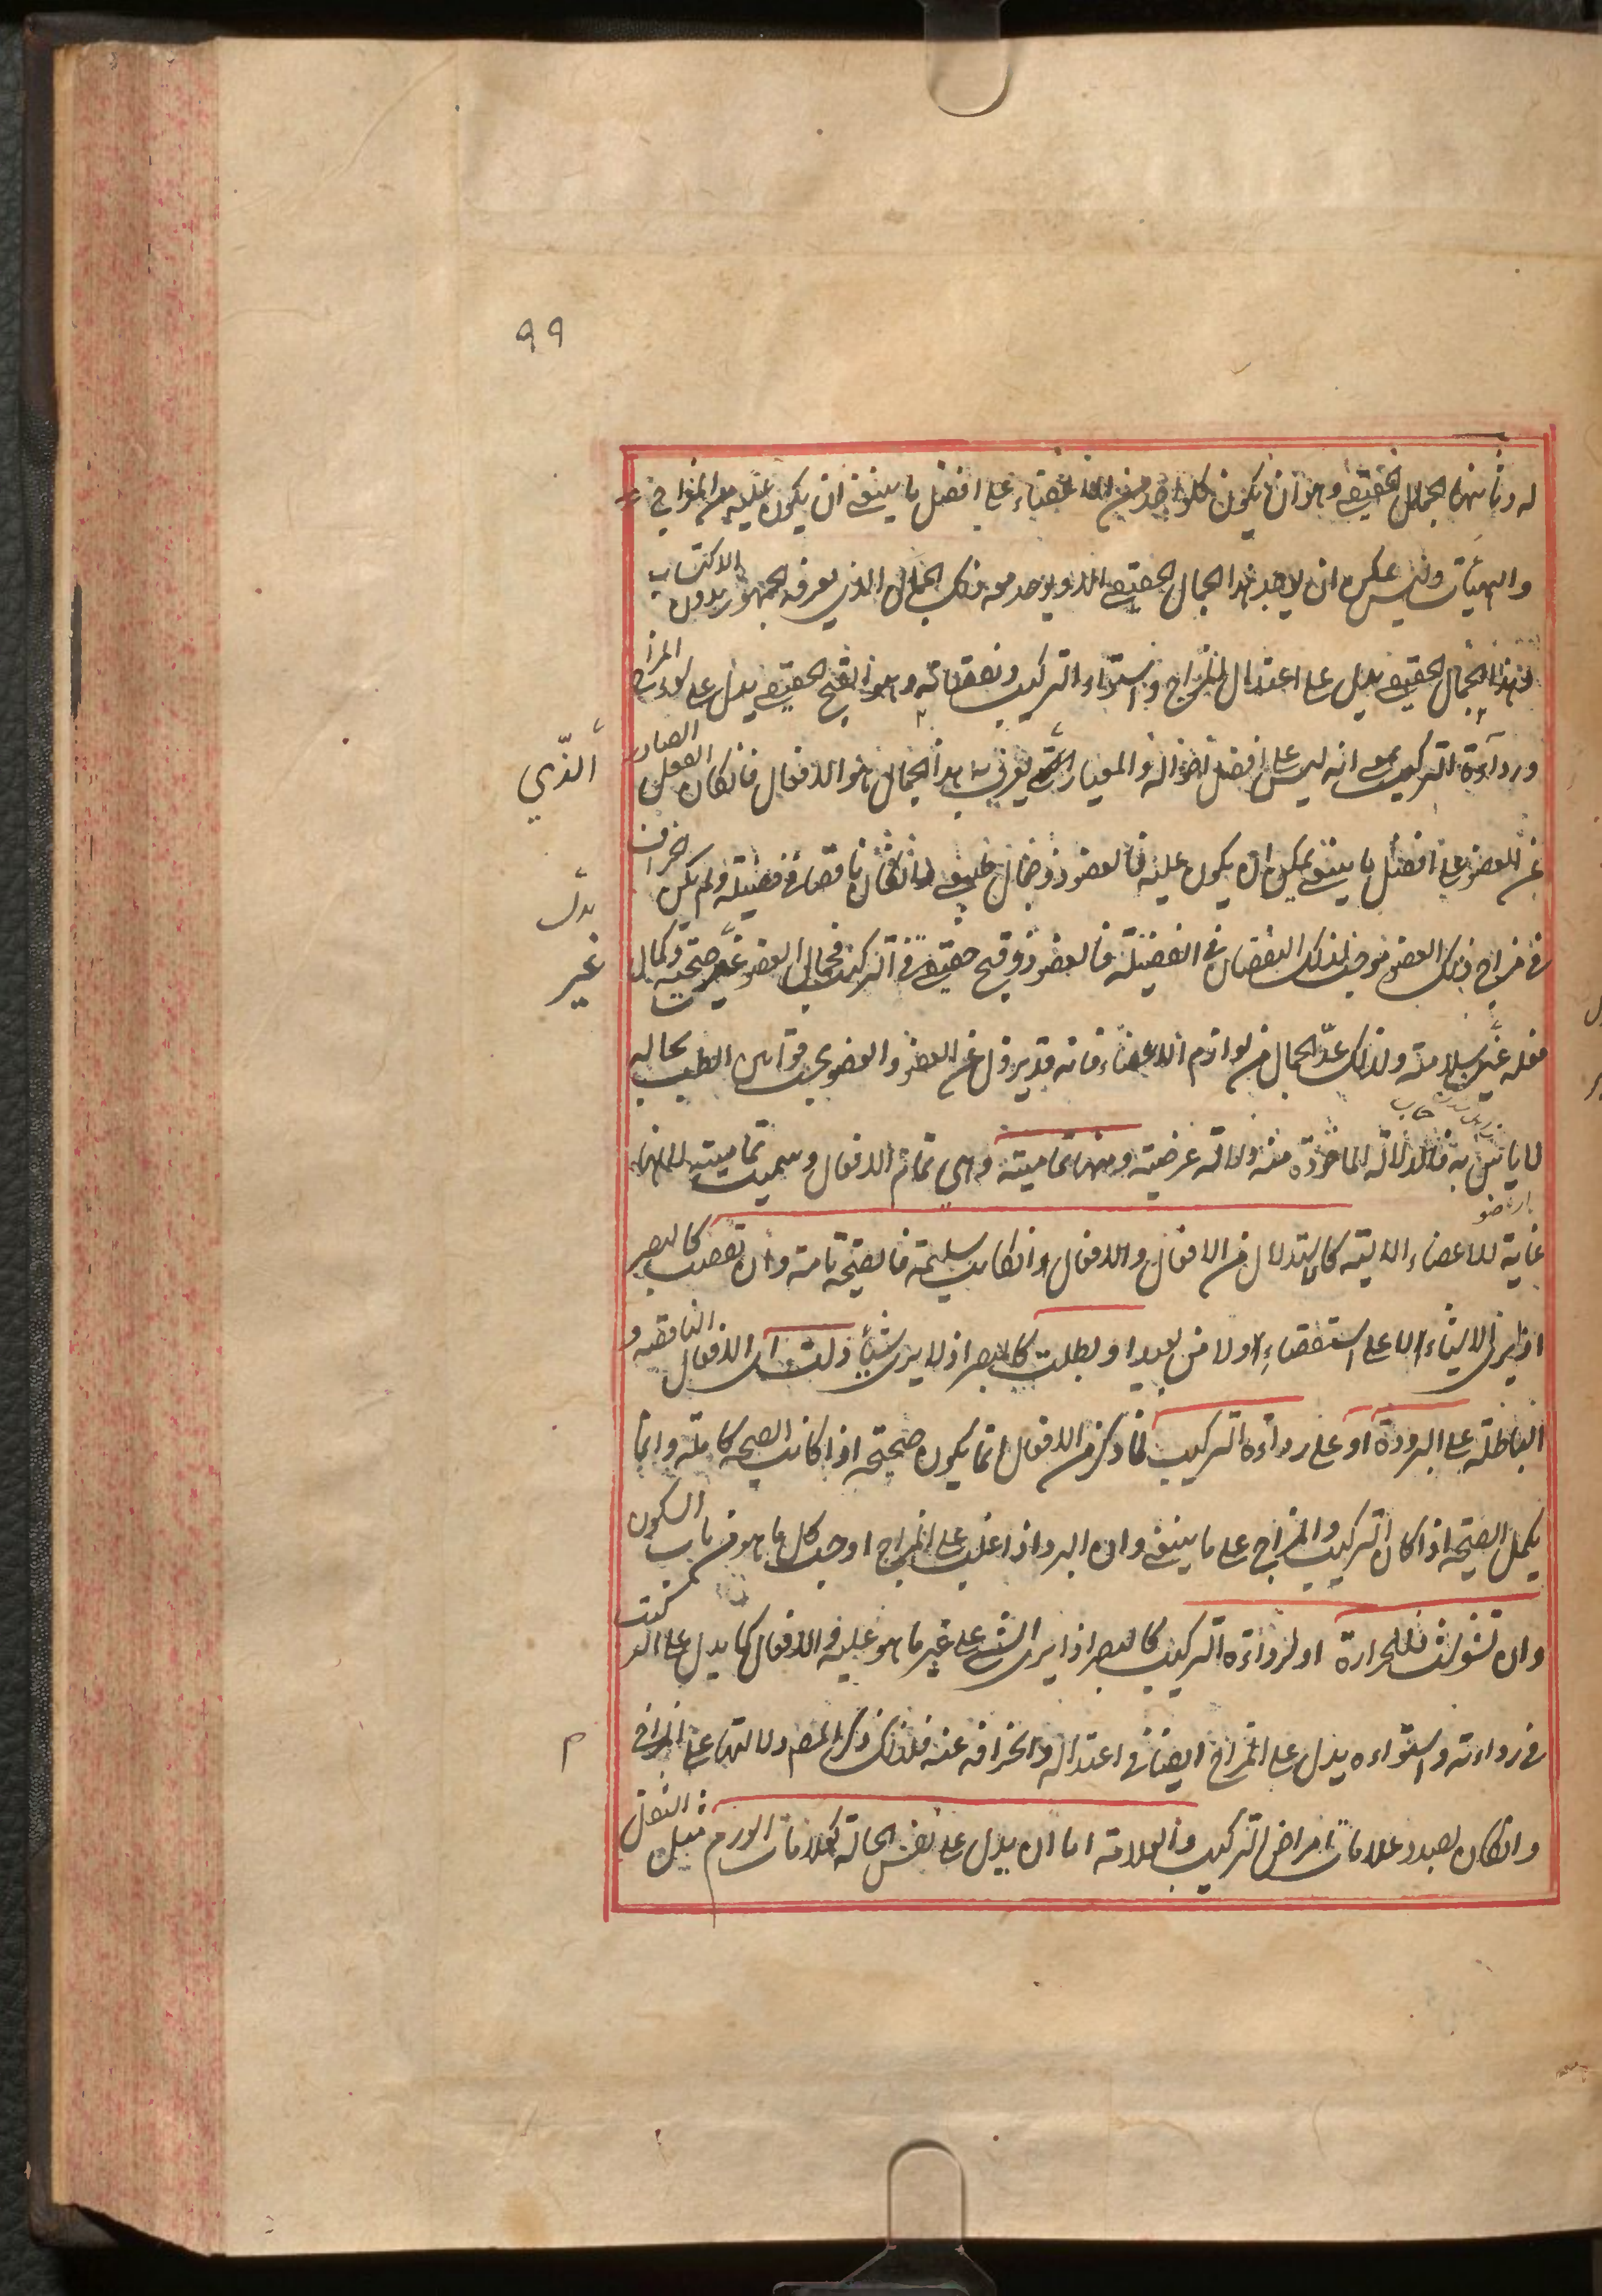 ٩٩
له وثانيهما الجمال الحقيقي وهو ان يكون كل واحد من الاعضاء على افضل ما ينبغي ان يكون عليه من المزاج
والهيئات وليس عكس ان لا يوجد هذا الجمال الحقيقي الا ويوجد معه ذلك الجمال الذي يعرفه الجمهور بدون الاكتساب
فهذا الجمال الحقيقي يدل على اعتدال المزاج واستواء التركيب ونقصانه وهو القبح الحقيقي يدل على سوء المزاج
ورداءة التركيب بمعنى انه ليس على افضل احواله والمعيار الذي يعرف به هذا الجمال هو الافعال فان كان الفعل الصادر
الذي
عن العضو على افضل ما ينبغي يمكن ان يكون عليه فالعضو ذو جمال حقيقي وان كان ناقصا في فضيلته ولم يكن انحراف
بدل
في مزاج ذلك العضو موجبا لذلك النقصان في الفضيلة فالعضو ذو قبح حقيقي في التركيب فجمال العضو غير صحته وكمال
غير
فعله غير سلامته ولذلك عد الجمال من لوازم الاعضاء فانه قد يزول عن العضو والعضو بحسب قوانين الطب بحاله
لا باس به فالدلالة الماخوذة منه دلالة عرضية ومنها تمامية وهي تمام الافعال وسميت تمامية لانها
غاية للاعضاء الالية كالاستدلال من الافعال والافعال ان كانت سليمة فالصحة تامة وان نقصت كالبصر
اذا يرى الاشياء لا على استقصاء اولا من بعيد او بطلت كالبصر اذ لا يرى شيئا دلت اى الافعال الناقصة و
الباطلة على البرودة او على رداءة التركيب لما ذكر من الافعال انما يكون صحيحة اذا كانت الصحة كاملة وانما
يكمل الصحة اذا كان التركيب والمزاج على ما ينبغي وان البرد اذا غلب على المزاج اوجب كل ما هو من باب السكون
وان تشوشت فللحرارة او لرداءة التركيب كالبصر اذا يرى الشيء على غير ما هو عليه والافعال كما يدل على التركيب
في رداءته واستواءه يدل على المزاج ايضا في اعتداله وانحرافه عنه فلذلك ذكر المصم دلالتها على المزاج
م
وان كان بصدد علامات امراض التركيب والعلامة اما ان يدل على نفس الحالة كعلامات الورم مثل الثقل